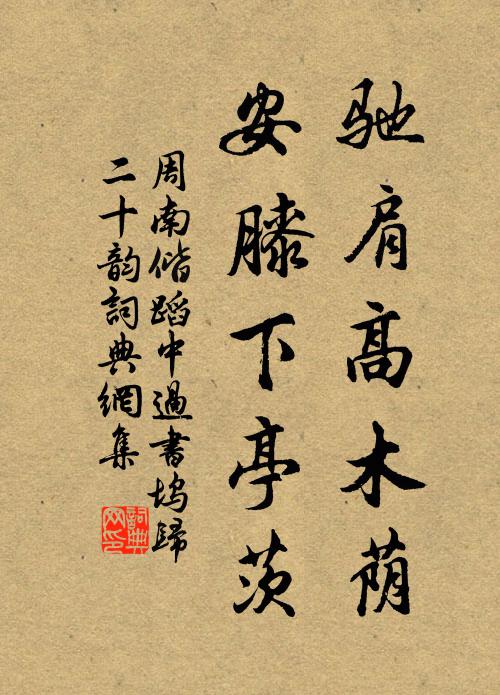 驰肩高木荫
安膝下亭茨
周南偕蹈中過書坞歸
二十韵詞典網集
詞典网印